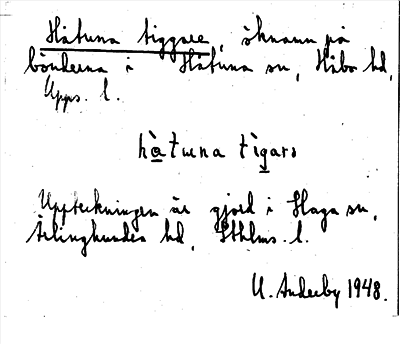 Håtuna tiggare, öknamn på
bönderna i Håtuna sn, Håbo hd,
Upps. l.
hàtuna tìgarə
Uppteckningen är gjord i Haga sn,
Ärlinghundra hd, Sthlms. l.
U. Anderby 1948.